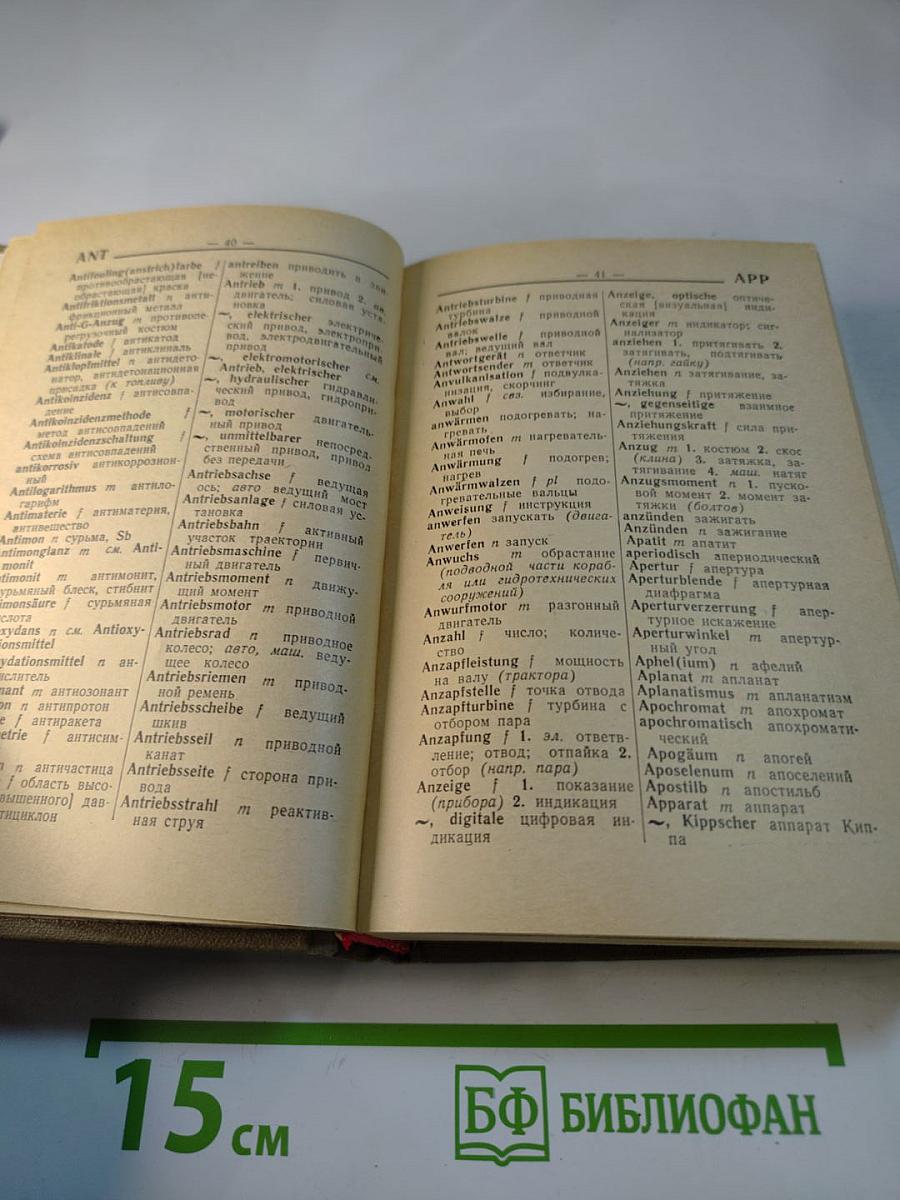 ANT
— 40 —
Antifouling(anstrich)farbe f
противообрастающая [не-
обрастающая] краска
Antifriktionsmetall n анти-
фрикционный металл
Anti-G-Anzug m противопе-
регрузочный костюм
Antikatode f антикатод
Antiklinale f антиклиналь
Antiklopfmittel n антидето-
натор, антидетонационная
присадка (к топливу)
Antikoinzidenz f антисовпа-
дение
Antikoinzidenzmethode f
метод антисовпадений
Antikoinzidenzschaltung f
схема антисовпадений
antikorrosiv антикоррозион-
ный
Antilogarithmus m антило-
гарифм
Antimaterie f антиматерия,
антивещество
Antimon n сурьма, Sb
Antimonglanz m см. Anti-
monit
timonit m антимонит,
сурьмяный блеск, стибнит
imonsäure f сурьмяная
слота
xydans n см. Antioxy-
ionsmittel
ydationsmittel n ан-
ислитель
nant m антиозонант
on n антипротон
e f антиракета
etrie f антисим-
n античастица
f область высо-
вышенного] дав-
тициклон
antreiben приводить в дви-
жение
Antrieb m 1. привод 2. см.
двигатель; силовая уста-
новка
~, elektrischer электриче-
ский привод, электропри-
вод, электродвигательный
привод
~, elektromotorischer см.
Antrieb, elektrischer
~, hydraulischer гидравли-
ческий привод, гидропри-
вод
~, motorischer двигатель-
ный привод
~, unmittelbarer непосред-
ственный привод, привод
без передачи
Antriebsachse f ведущая
ось; авто ведущий мост
Antriebsanlage f силовая ус-
тановка
Antriebsbahn f активный
участок траектории
Antriebsmaschine f первич-
ный двигатель
Antriebsmoment n движу-
щий момент
Antriebsmotor m приводной
двигатель
Antriebsrad n приводное
колесо; авто, маш. веду-
щее колесо
Antriebsriemen m привод-
ной ремень
Antriebsscheibe f ведущий
шкив
Antriebsseil n приводной
канат
Antriebsseite f сторона при-
вода
Antriebsstrahl m реактив-
ная струя
— 41 —
APP
Antriebsturbine f приводная
турбина
Antriebswalze f приводной
валок
Antriebswelle f приводной
вал; ведущий вал
Antwortgerät n ответчик
Antwortsender m ответчик
Anvulkanisation f подвулка-
низация, скорчинг
Anwahl f свз. избирание,
выбор
anwärmen подогревать; на-
гревать
Anwärmofen m нагреватель-
ная печь
Anwärmung f подогрев;
нагрев
Anwärmwalzen f pl подо-
гревательные вальцы
Anweisung f инструкция
anwerfen запускать (двига-
тель)
Anwerfen n запуск
Anwuchs m обрастание
(подводной части кораб-
ля или гидротехнических
сооружений)
Anwurfmotor m разгонный
двигатель
Anzahl f число; количе-
ство
Anzapfleistung f мощность
на валу (трактора)
Anzapfstelle f точка отвода
Anzapfturbine f турбина с
отбором пара
Anzapfung f 1. эл. ответв-
ление; отвод; отпайка 2.
отбор (напр. пара)
Anzeige f 1. показание
(прибора) 2. индикация
~, digitale цифровая ин-
дикация
Anzeige, optische оптиче-
ская [визуальная] инди-
кация
Anzeiger m индикатор; сиг-
нализатор
anziehen 1. притягивать 2.
затягивать, подтягивать
(напр. гайку)
Anziehen n затягивание, за-
тяжка
Anziehung f притяжение
~, gegenseitige взаимное
притяжение
Anziehungskraft f сила при-
тяжения
Anzug m 1. костюм 2. скос
(клина) 3. затяжка, за-
тягивание 4. маш. натяг
Anzugsmoment n 1. пуско-
вой момент 2. момент за-
тяжки (болтов)
anzünden зажигать
Anzünden n зажигание
Apatit m апатит
aperiodisch апериодический
Apertur f апертура
Aperturblende f апертурная
диафрагма
Aperturverzerrung f апер-
турное искажение
Aperturwinkel m апертур-
ный угол
Aphel(ium) n афелий
Aplanat m апланат
Aplanatismus m апланатизм
Apochromat m апохромат
apochromatisch апохромати-
ческий
Apogäum n апогей
Aposelenum n апоселений
Apostilb n апостильб
Apparat m аппарат
~, Kippscher аппарат Кип-
па
15 см
БФ БИБЛИОФАН